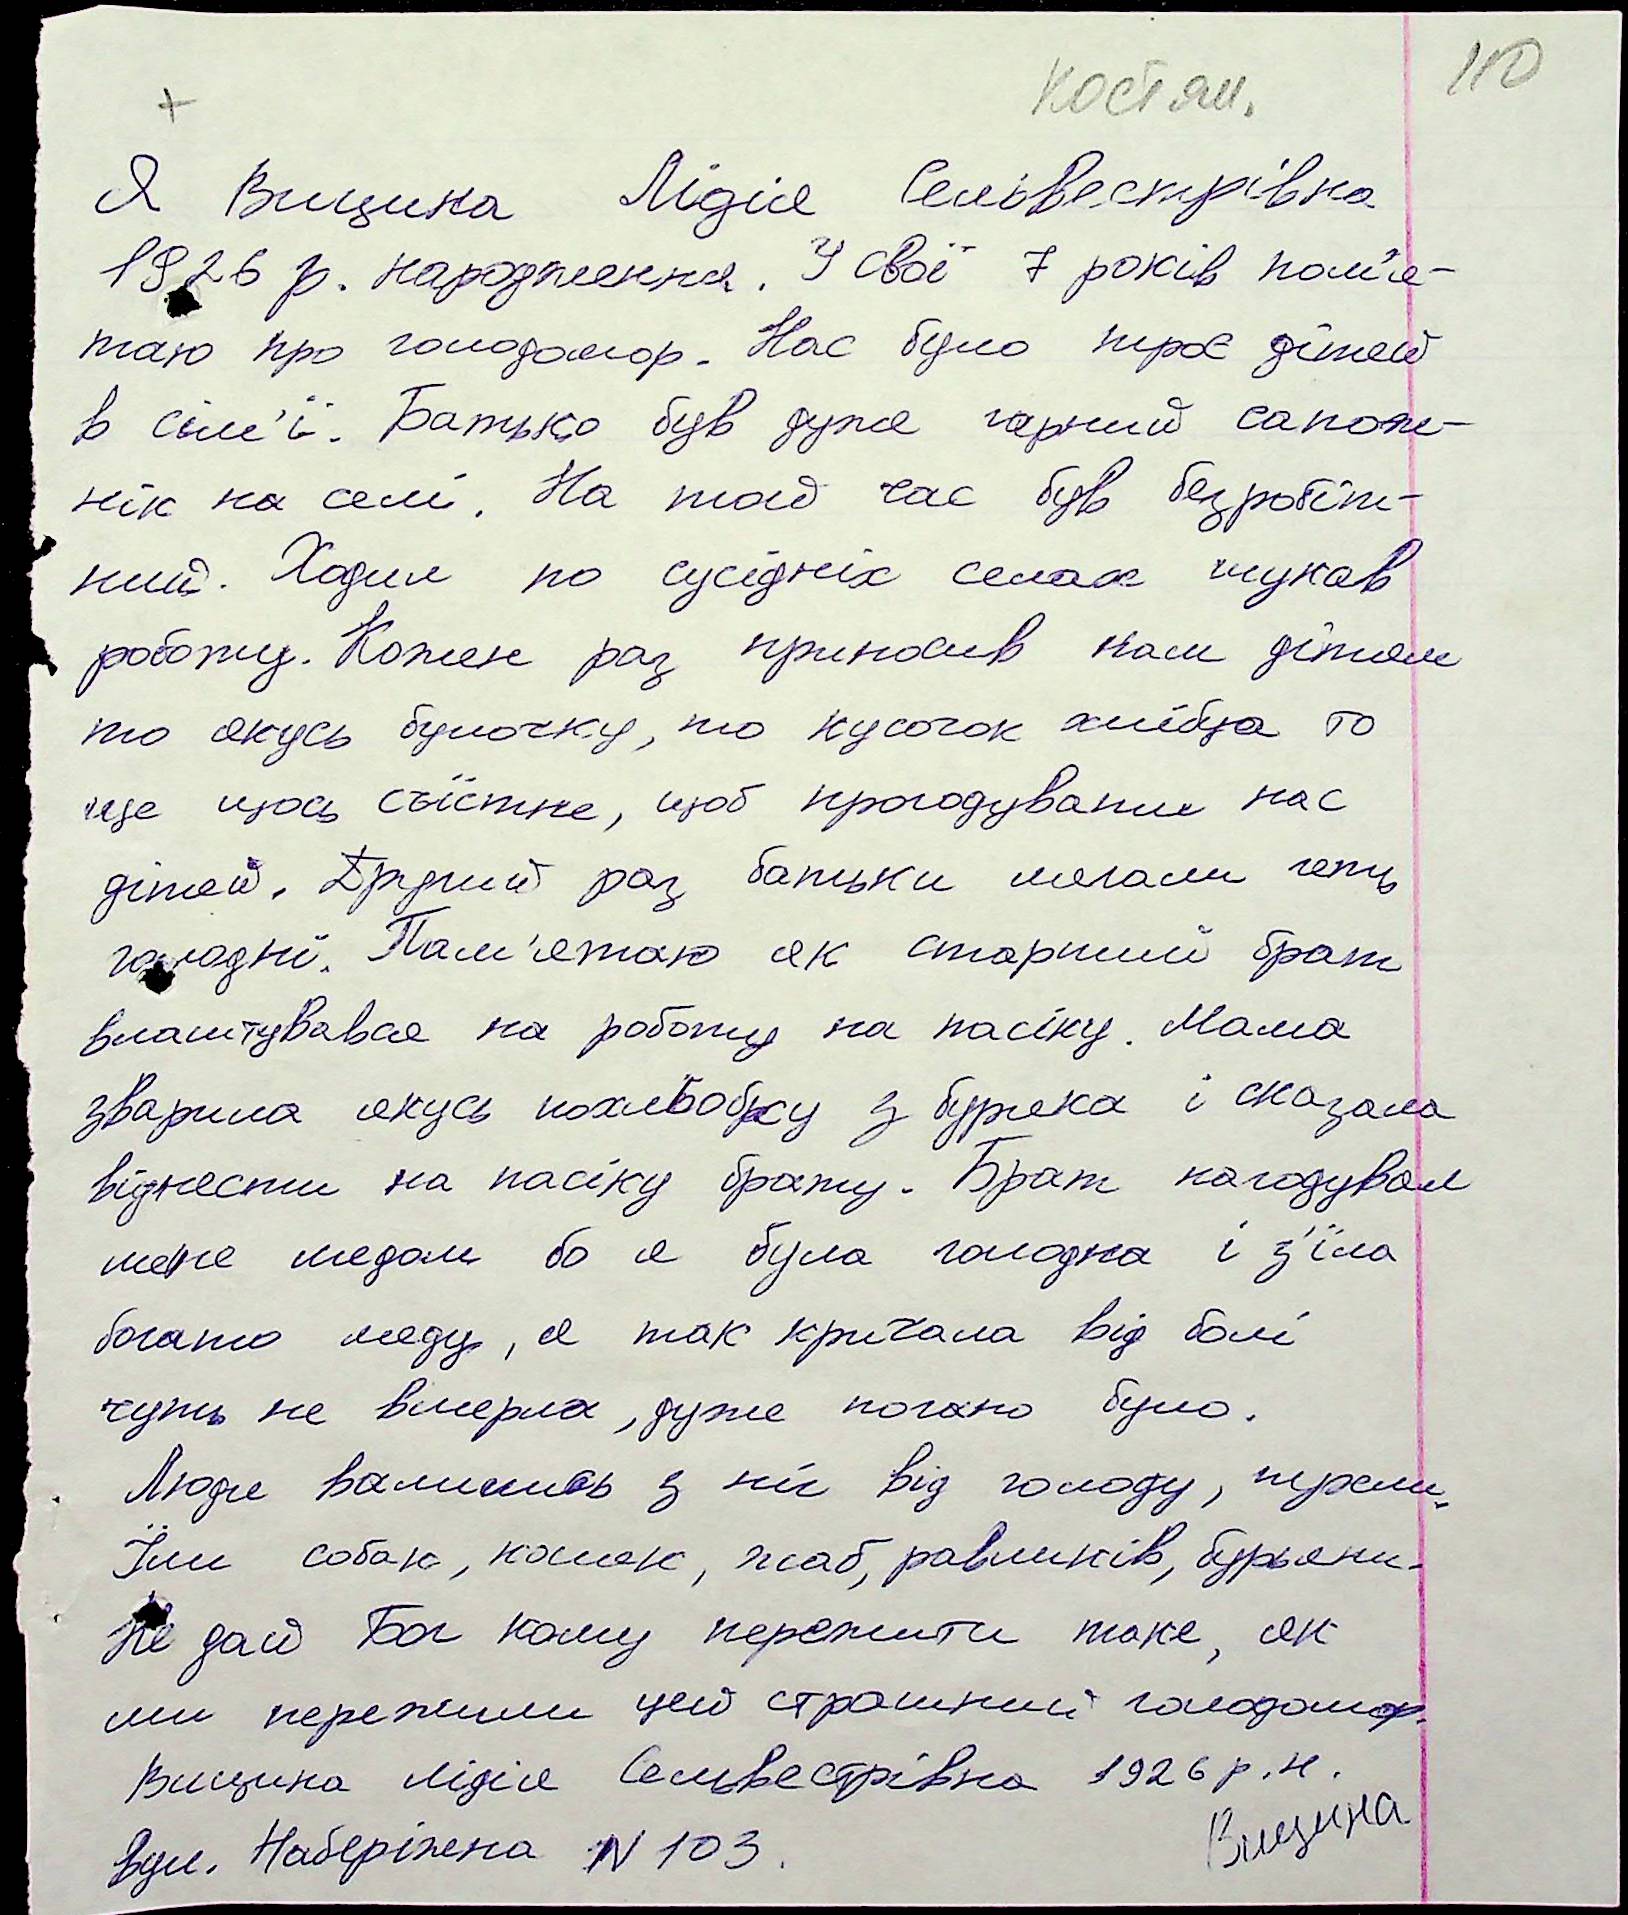 + Костян. 110
Я Вищина Лідія Сельвестрівна
1926 р. народження. У свої 7 років пам'я-
таю про голодомор. Нас було троє дітей
в сім'ї. Батько був дуже гарний сапож-
нік на селі. На той час був безробіт-
ний. Ходил по сусідніх селах шукав
роботу. Кожен раз приносив нам дітям
то якусь булочку, то кусочок хлібця то
ще щось съїстне, щоб прогодувати нас
дітей. Другий раз батьки лягали геть
голодні. Пам'ятаю як старший брат
влаштувався на роботу на пасіку. Мама
зварила якусь похльобку з буряка і сказала
віднести на пасіку брату. Брат нагодувал
мене медом бо я була голодна і з'їла
богато меду, я так кричала від болі
чуть не вмерла, дуже погано було.
Люди валились з ніг від голоду, пухли.
Їли собак, кошек, жаб, равликів, бурьяни.
Не дай Бог кому пережити таке, як
ми пережили цей страшний голодомор.
Вищина Лідія Сельвестрівна 1926 р.н.
вул. Набєріжна N 103.
Вищина